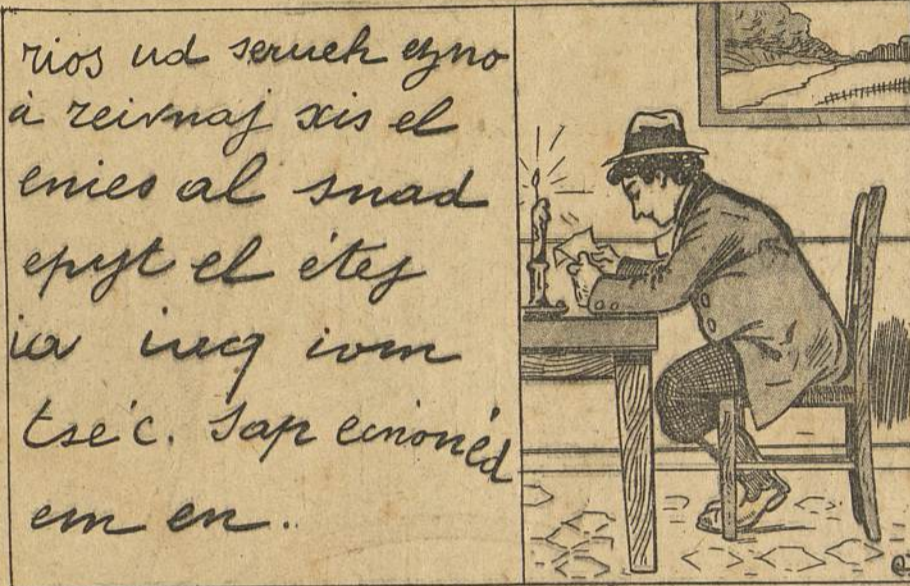 rios ud serueh ezno
à reivnaj xis el
enies al snad
epyt el étej
ia iuq iom
tsé'c. Sap ecnonéd
em en.